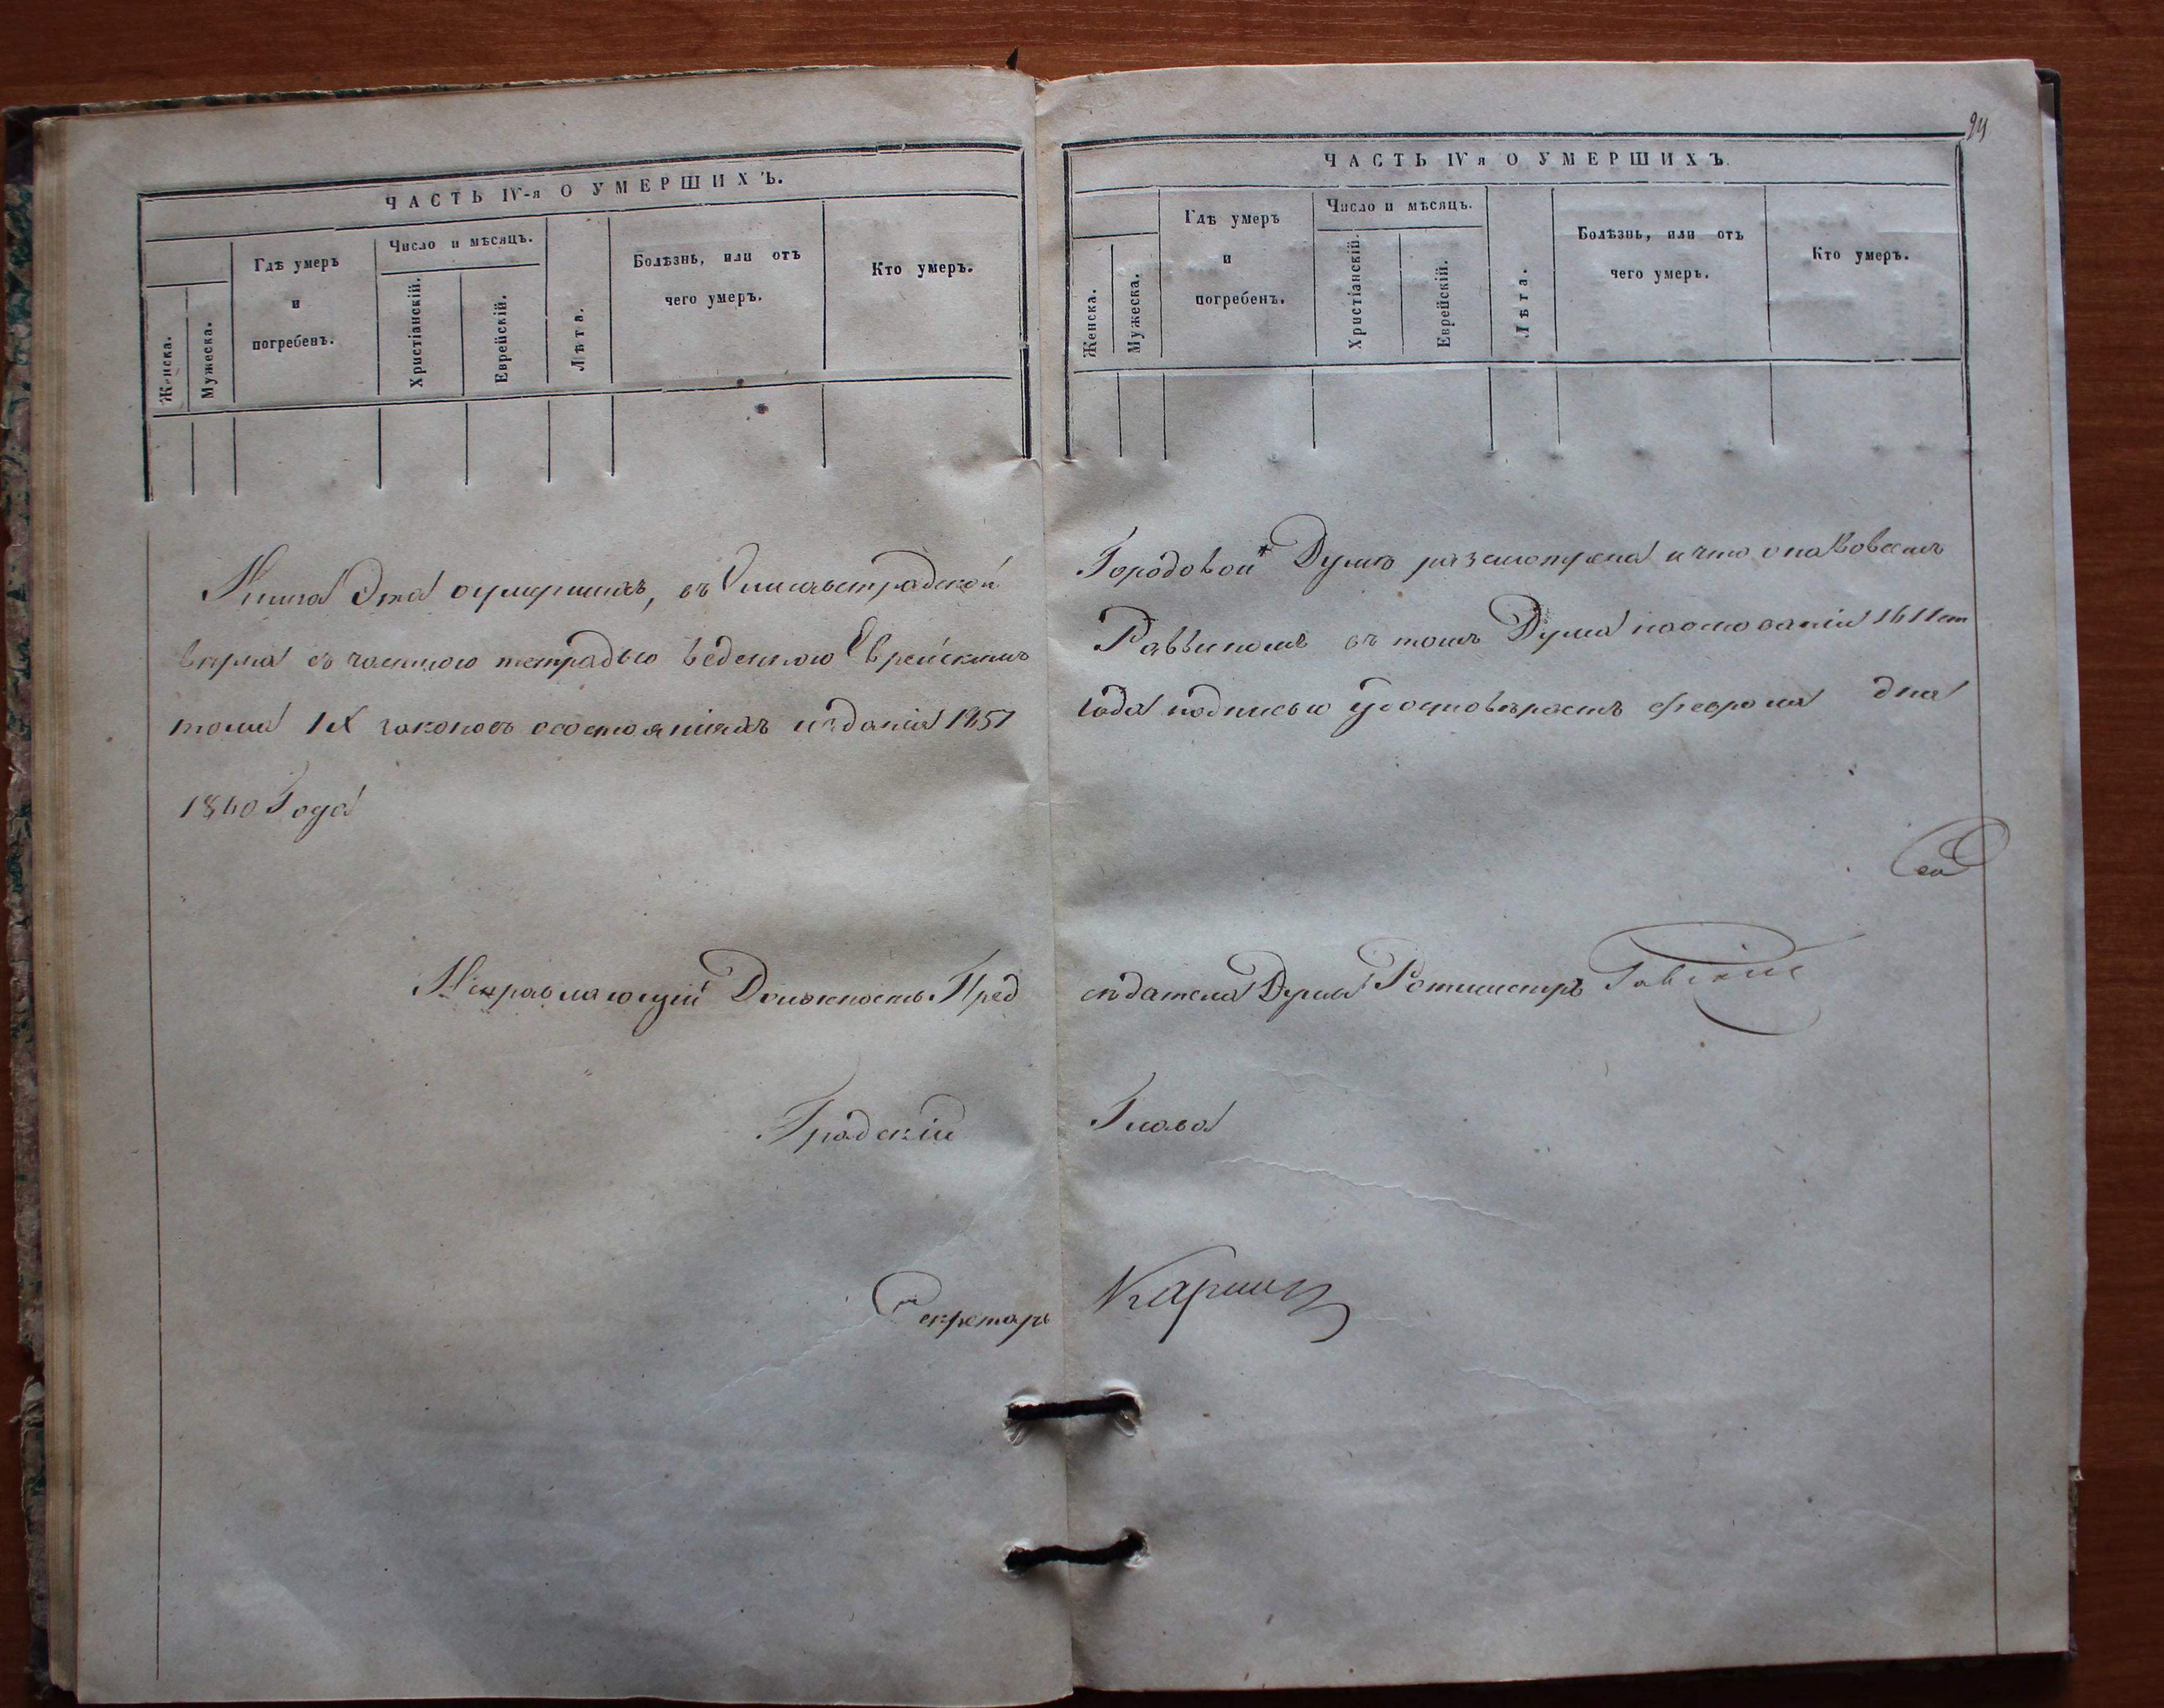 ЧАСТЬ IV-я О УМЕРШИХЪ.
Женска.
Мужеска.
Гдѣ умеръ
и
погребенъ.
Число и мѣсяцъ.
Христіанскій.
Еврейскій.
Лѣта.
Болѣзнь, или отъ
чего умеръ.
Кто умеръ.
Книга Эта оумершихъ, въ Елисаветградской
вѣрна съ частною тетрадью веденною Еврейскимъ
тома IX законовъ осостояніяхъ изданія 1857
1860 Года
Исправляющій Должность Пред
Градскій
Секретарь
94
ЧАСТЬ IV я О УМЕРШИХЪ.
Женска.
Мужеска.
Гдѣ умеръ
и
погребенъ.
Число и мѣсяцъ.
Христіанскій.
Еврейскій.
Лѣта.
Болѣзнь, или отъ
чего умеръ.
Кто умеръ.
Городовой Думѣ разсмотрена и что она вовсемъ
Раввиномъ въ томъ Дума наосновании 1611 ст
года подписью удостовѣряетъ Февраля дня
сѣдателя Думы Ротмистръ
Глава